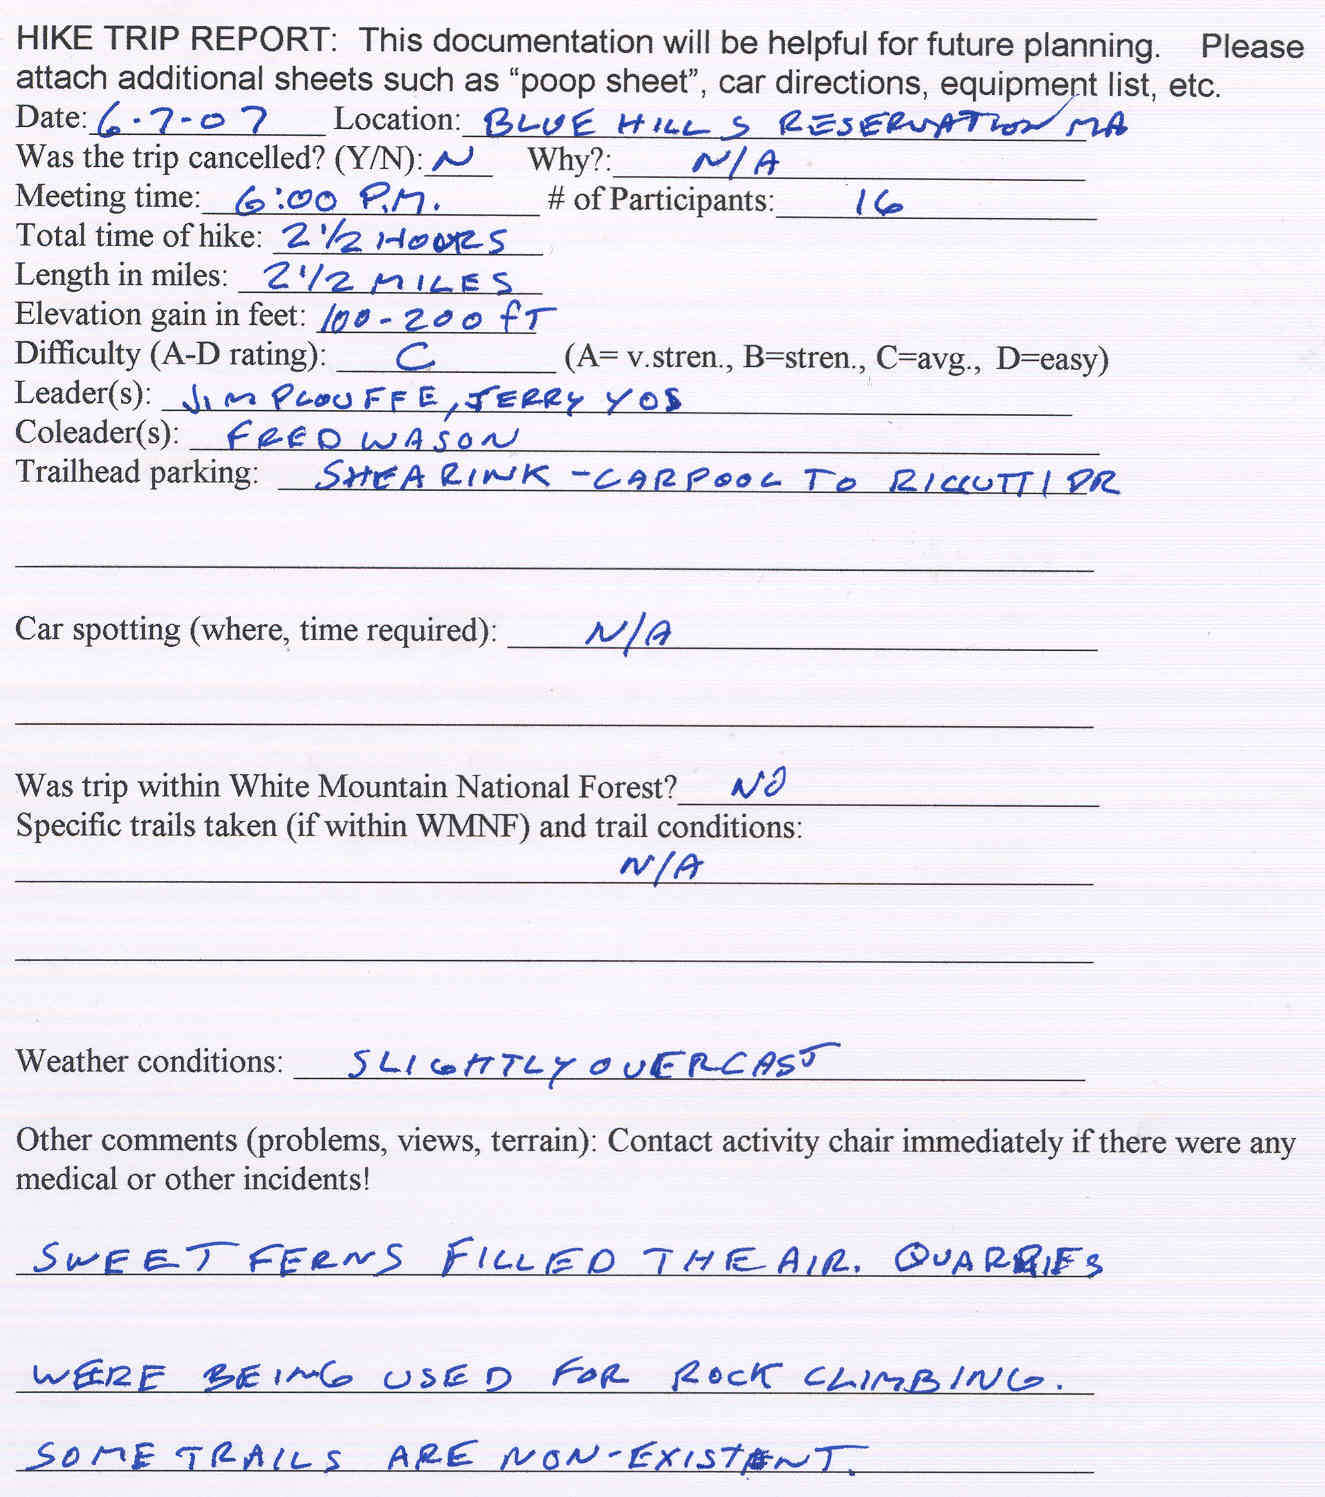 HIKE TRIP REPORT: This documentation will be helpful for future planning. Please
attach additional sheets such as “poop sheet”, car directions, equipment list, etc.
Date: 6-7-07 Location: BLUE HILLS RESERVATION MA
Was the trip cancelled? (Y/N): N Why?: N/A
Meeting time: 6:00 P.M. # of Participants: 16
Total time of hike: 2 1/2 HOURS
Length in miles: 2 1/2 MILES
Elevation gain in feet: 100-200 FT
Difficulty (A-D rating): C (A= v.stren., B=stren., C=avg., D=easy)
Leader(s): JIM PLOUFFE, JERRY YOS
Coleader(s): FRED WASON
Trailhead parking: SHEA RINK - CARPOOL TO RICCUTTI DR
Car spotting (where, time required): N/A
Was trip within White Mountain National Forest? NO
Specific trails taken (if within WMNF) and trail conditions:
N/A
Weather conditions: SLIGHTLY OVERCAST
Other comments (problems, views, terrain): Contact activity chair immediately if there were any
medical or other incidents!
SWEET FERNS FILLED THE AIR. QUARRIES
WERE BEING USED FOR ROCK CLIMBING.
SOME TRAILS ARE NON-EXISTENT.